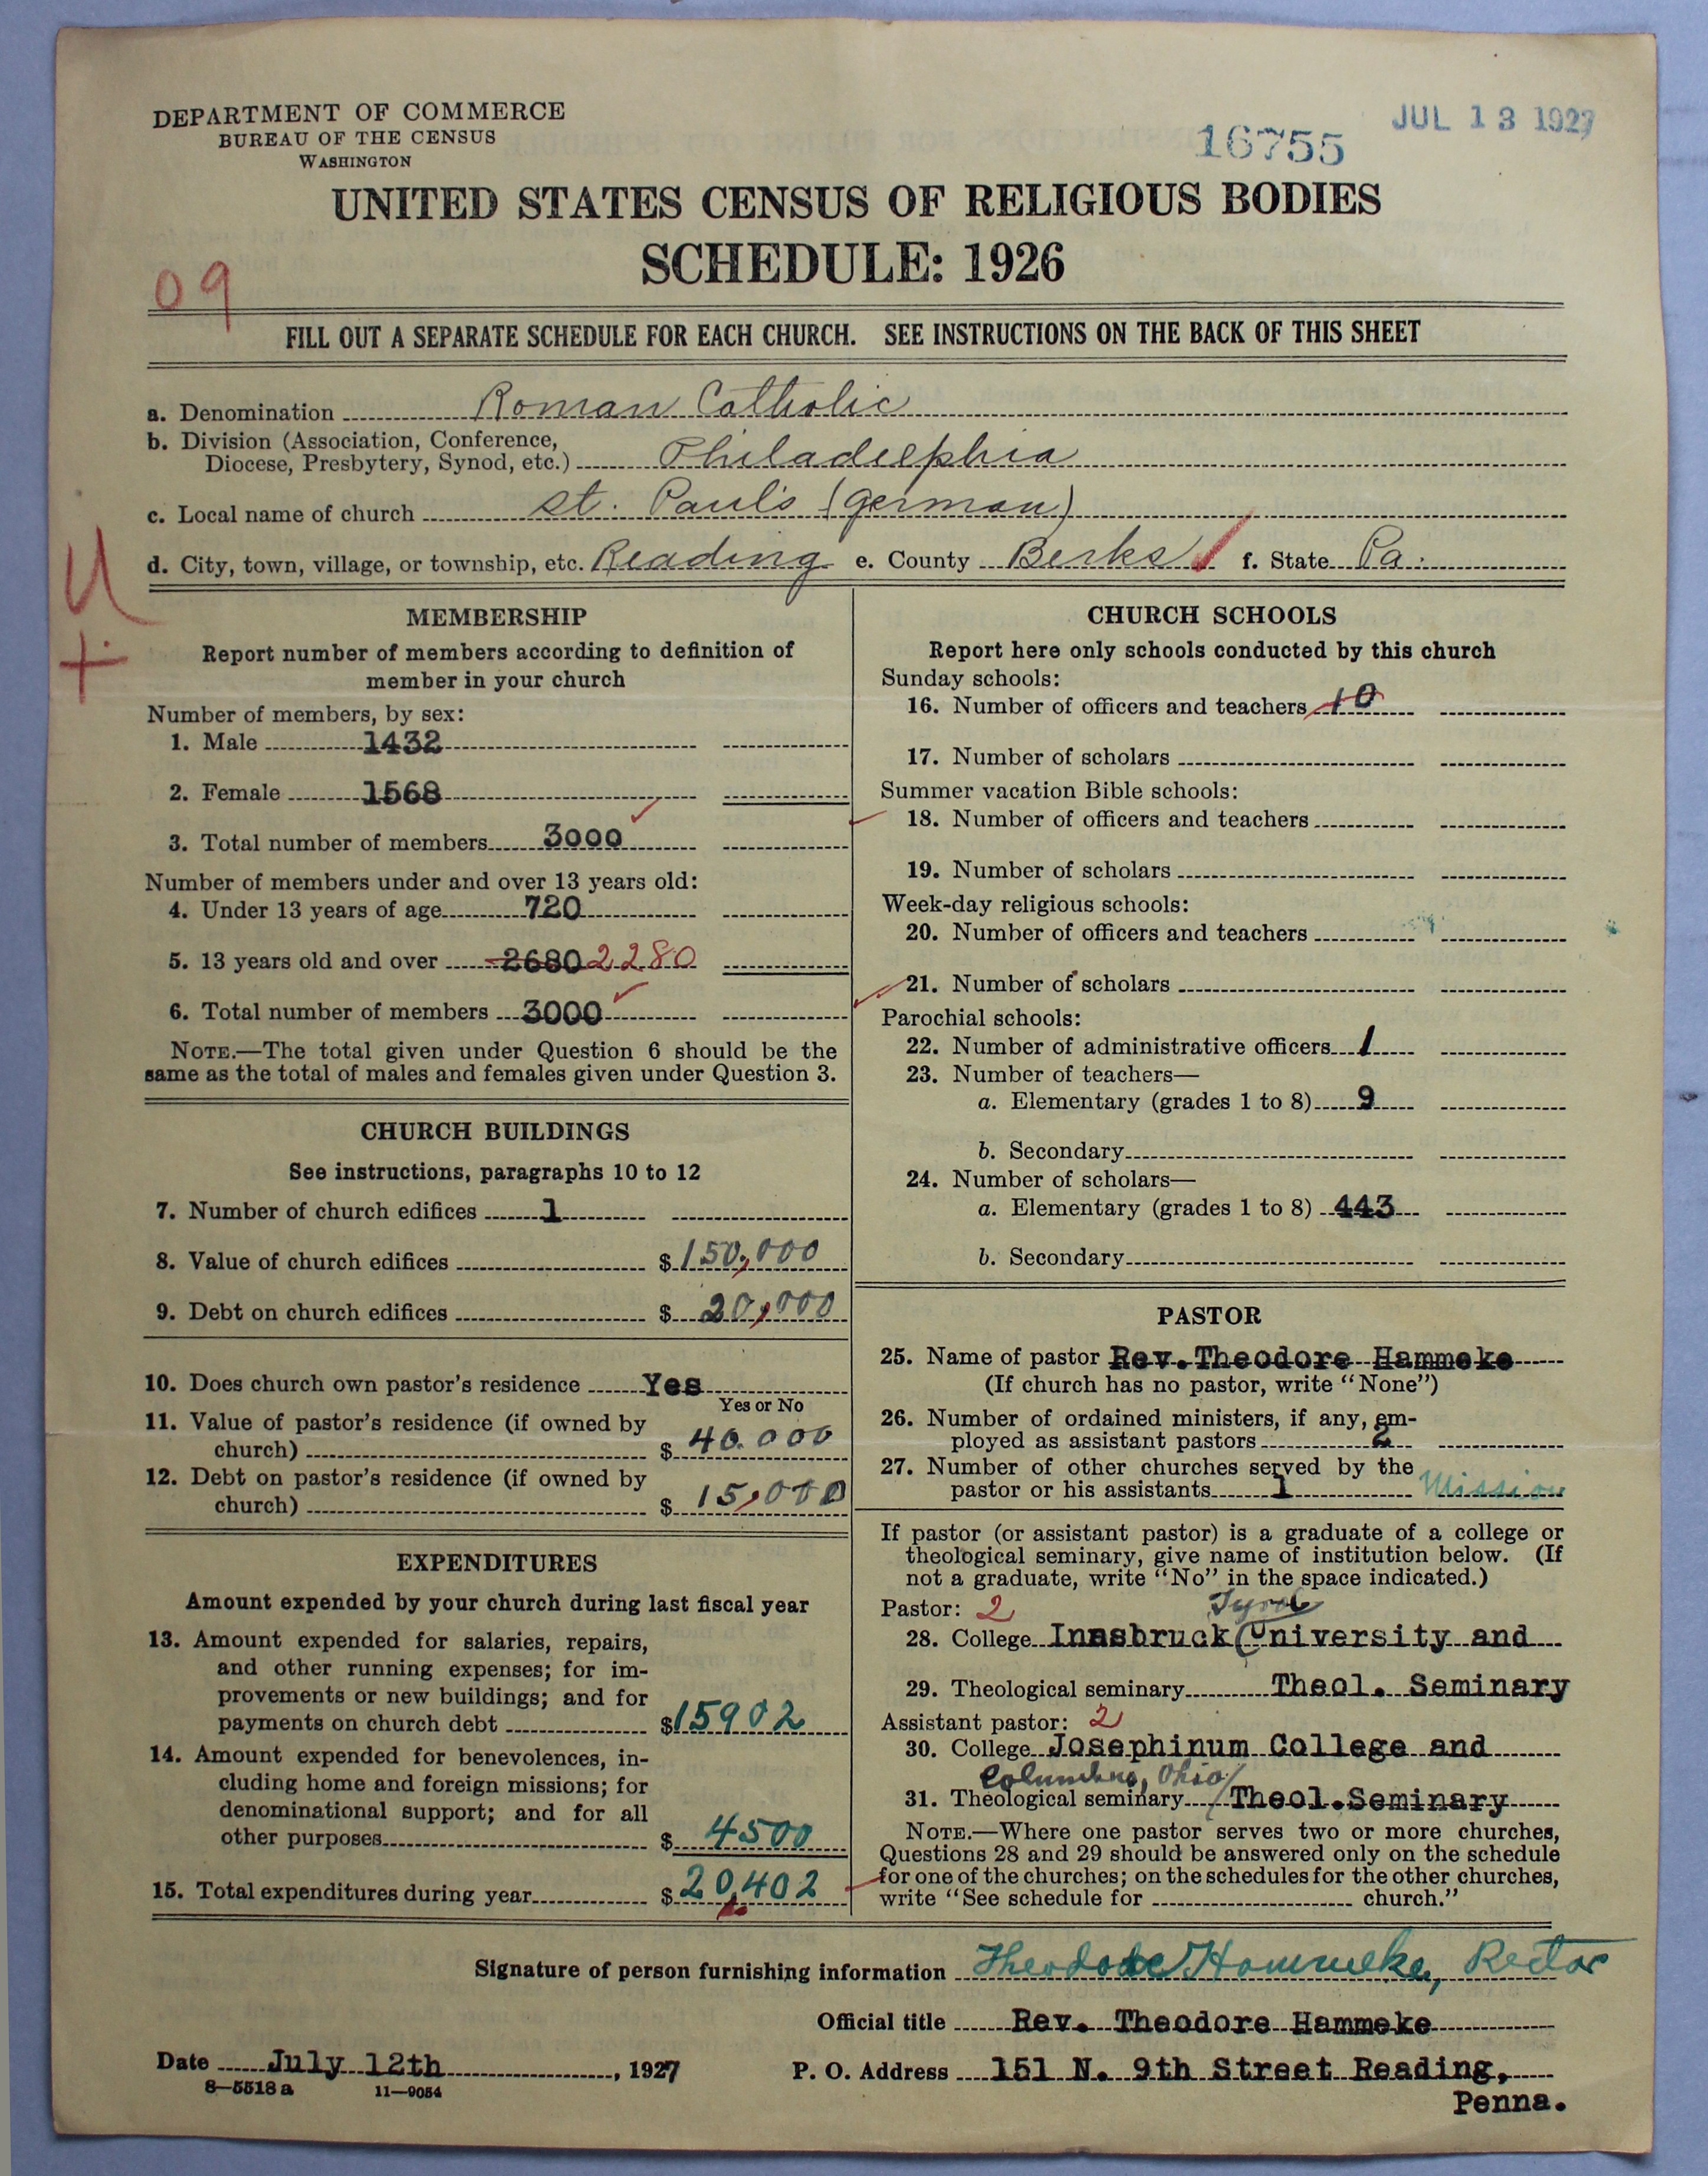 DEPARTMENT OF COMMERCE
BUREAU OF THE CENSUS
WASHINGTON
16755
JUL 13 1927
UNITED STATES CENSUS OF RELIGIOUS BODIES
SCHEDULE: 1926
09
FILL OUT A SEPARATE SCHEDULE FOR EACH CHURCH. SEE INSTRUCTIONS ON THE BACK OF THIS SHEET
a. Denomination Roman Catholic
b. Division (Association, Conference,
Diocese, Presbytery, Synod, etc.) Philadelphia
c. Local name of church St. Paul's (German)
d. City, town, village, or township, etc. Reading e. County Berks f. State Pa.
U
+
MEMBERSHIP
Report number of members according to definition of
member in your church
Number of members, by sex:
1. Male 1432
2. Female 1568
3. Total number of members 3000
Number of members under and over 13 years old:
4. Under 13 years of age 720
5. 13 years old and over 2680 2280
6. Total number of members 3000
NOTE.—The total given under Question 6 should be the
same as the total of males and females given under Question 3.
CHURCH BUILDINGS
See instructions, paragraphs 10 to 12
7. Number of church edifices 1
8. Value of church edifices $ 150,000
9. Debt on church edifices $ 20,000
10. Does church own pastor's residence Yes
Yes or No
11. Value of pastor's residence (if owned by
church) $ 40.000
12. Debt on pastor's residence (if owned by
church) $ 15,000
EXPENDITURES
Amount expended by your church during last fiscal year
13. Amount expended for salaries, repairs,
and other running expenses; for im-
provements or new buildings; and for
payments on church debt $15902
14. Amount expended for benevolences, in-
cluding home and foreign missions; for
denominational support; and for all
other purposes $ 4500
15. Total expenditures during year $ 20,402
CHURCH SCHOOLS
Report here only schools conducted by this church
Sunday schools:
16. Number of officers and teachers 10
17. Number of scholars
Summer vacation Bible schools:
18. Number of officers and teachers
19. Number of scholars
Week-day religious schools:
20. Number of officers and teachers
21. Number of scholars
Parochial schools:
22. Number of administrative officers 1
23. Number of teachers—
a. Elementary (grades 1 to 8) 9
b. Secondary
24. Number of scholars—
a. Elementary (grades 1 to 8) 443
b. Secondary
PASTOR
25. Name of pastor Rev. Theodore Hammeke
(If church has no pastor, write "None")
26. Number of ordained ministers, if any, em-
ployed as assistant pastors 2
27. Number of other churches served by the
pastor or his assistants 1 Mission
If pastor (or assistant pastor) is a graduate of a college or
theological seminary, give name of institution below. (If
not a graduate, write "No" in the space indicated.)
Pastor: 2 Tyrol
28. College Innsbruck (University and
29. Theological seminary Theol. Seminary
Assistant pastor: 2
30. College Josephinum College and
Columbus, Ohio
31. Theological seminary Theol.Seminary
NOTE.—Where one pastor serves two or more churches,
Questions 28 and 29 should be answered only on the schedule
for one of the churches; on the schedules for the other churches,
write "See schedule for church."
Signature of person furnishing information Theodore Hammeke, Rector
Official title Rev. Theodore Hammeke
Date July 12th, 1927 P. O. Address 151 N. 9th Street Reading,
Penna.
8—5518 a 11—9054